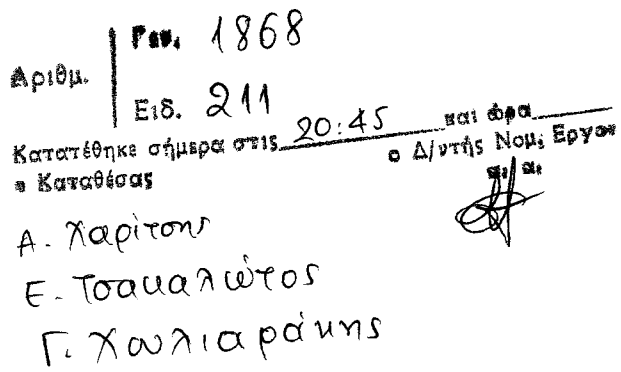 Αριθμ.
Γεν. 1868
Ειδ. 211
Κατατέθηκε σήμερα στις 20:45 και ώρα
ο Καταθέσας ο Δ/ντής Νομ. Εργου
α. α.
Α. Χαρίτσης
Ε. Τσακαλώτος
Γ. Χουλιαράκης